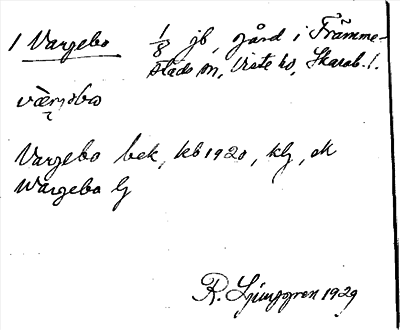 1 Vargebo 1/8 jb, gård i Främme-
stads sn, Viste hd, Skarab. l.
Vargebo bek, kb 1920, klj, ek
Wargebo lj
R. Ljunggren 1929